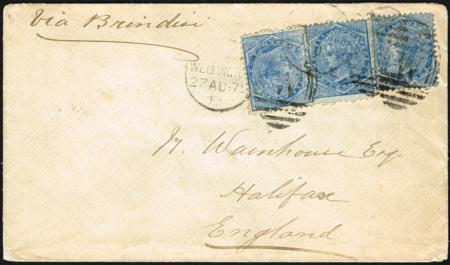 Via Brindisi
27 AU 7
Wainhouse Esq
Halifax
England